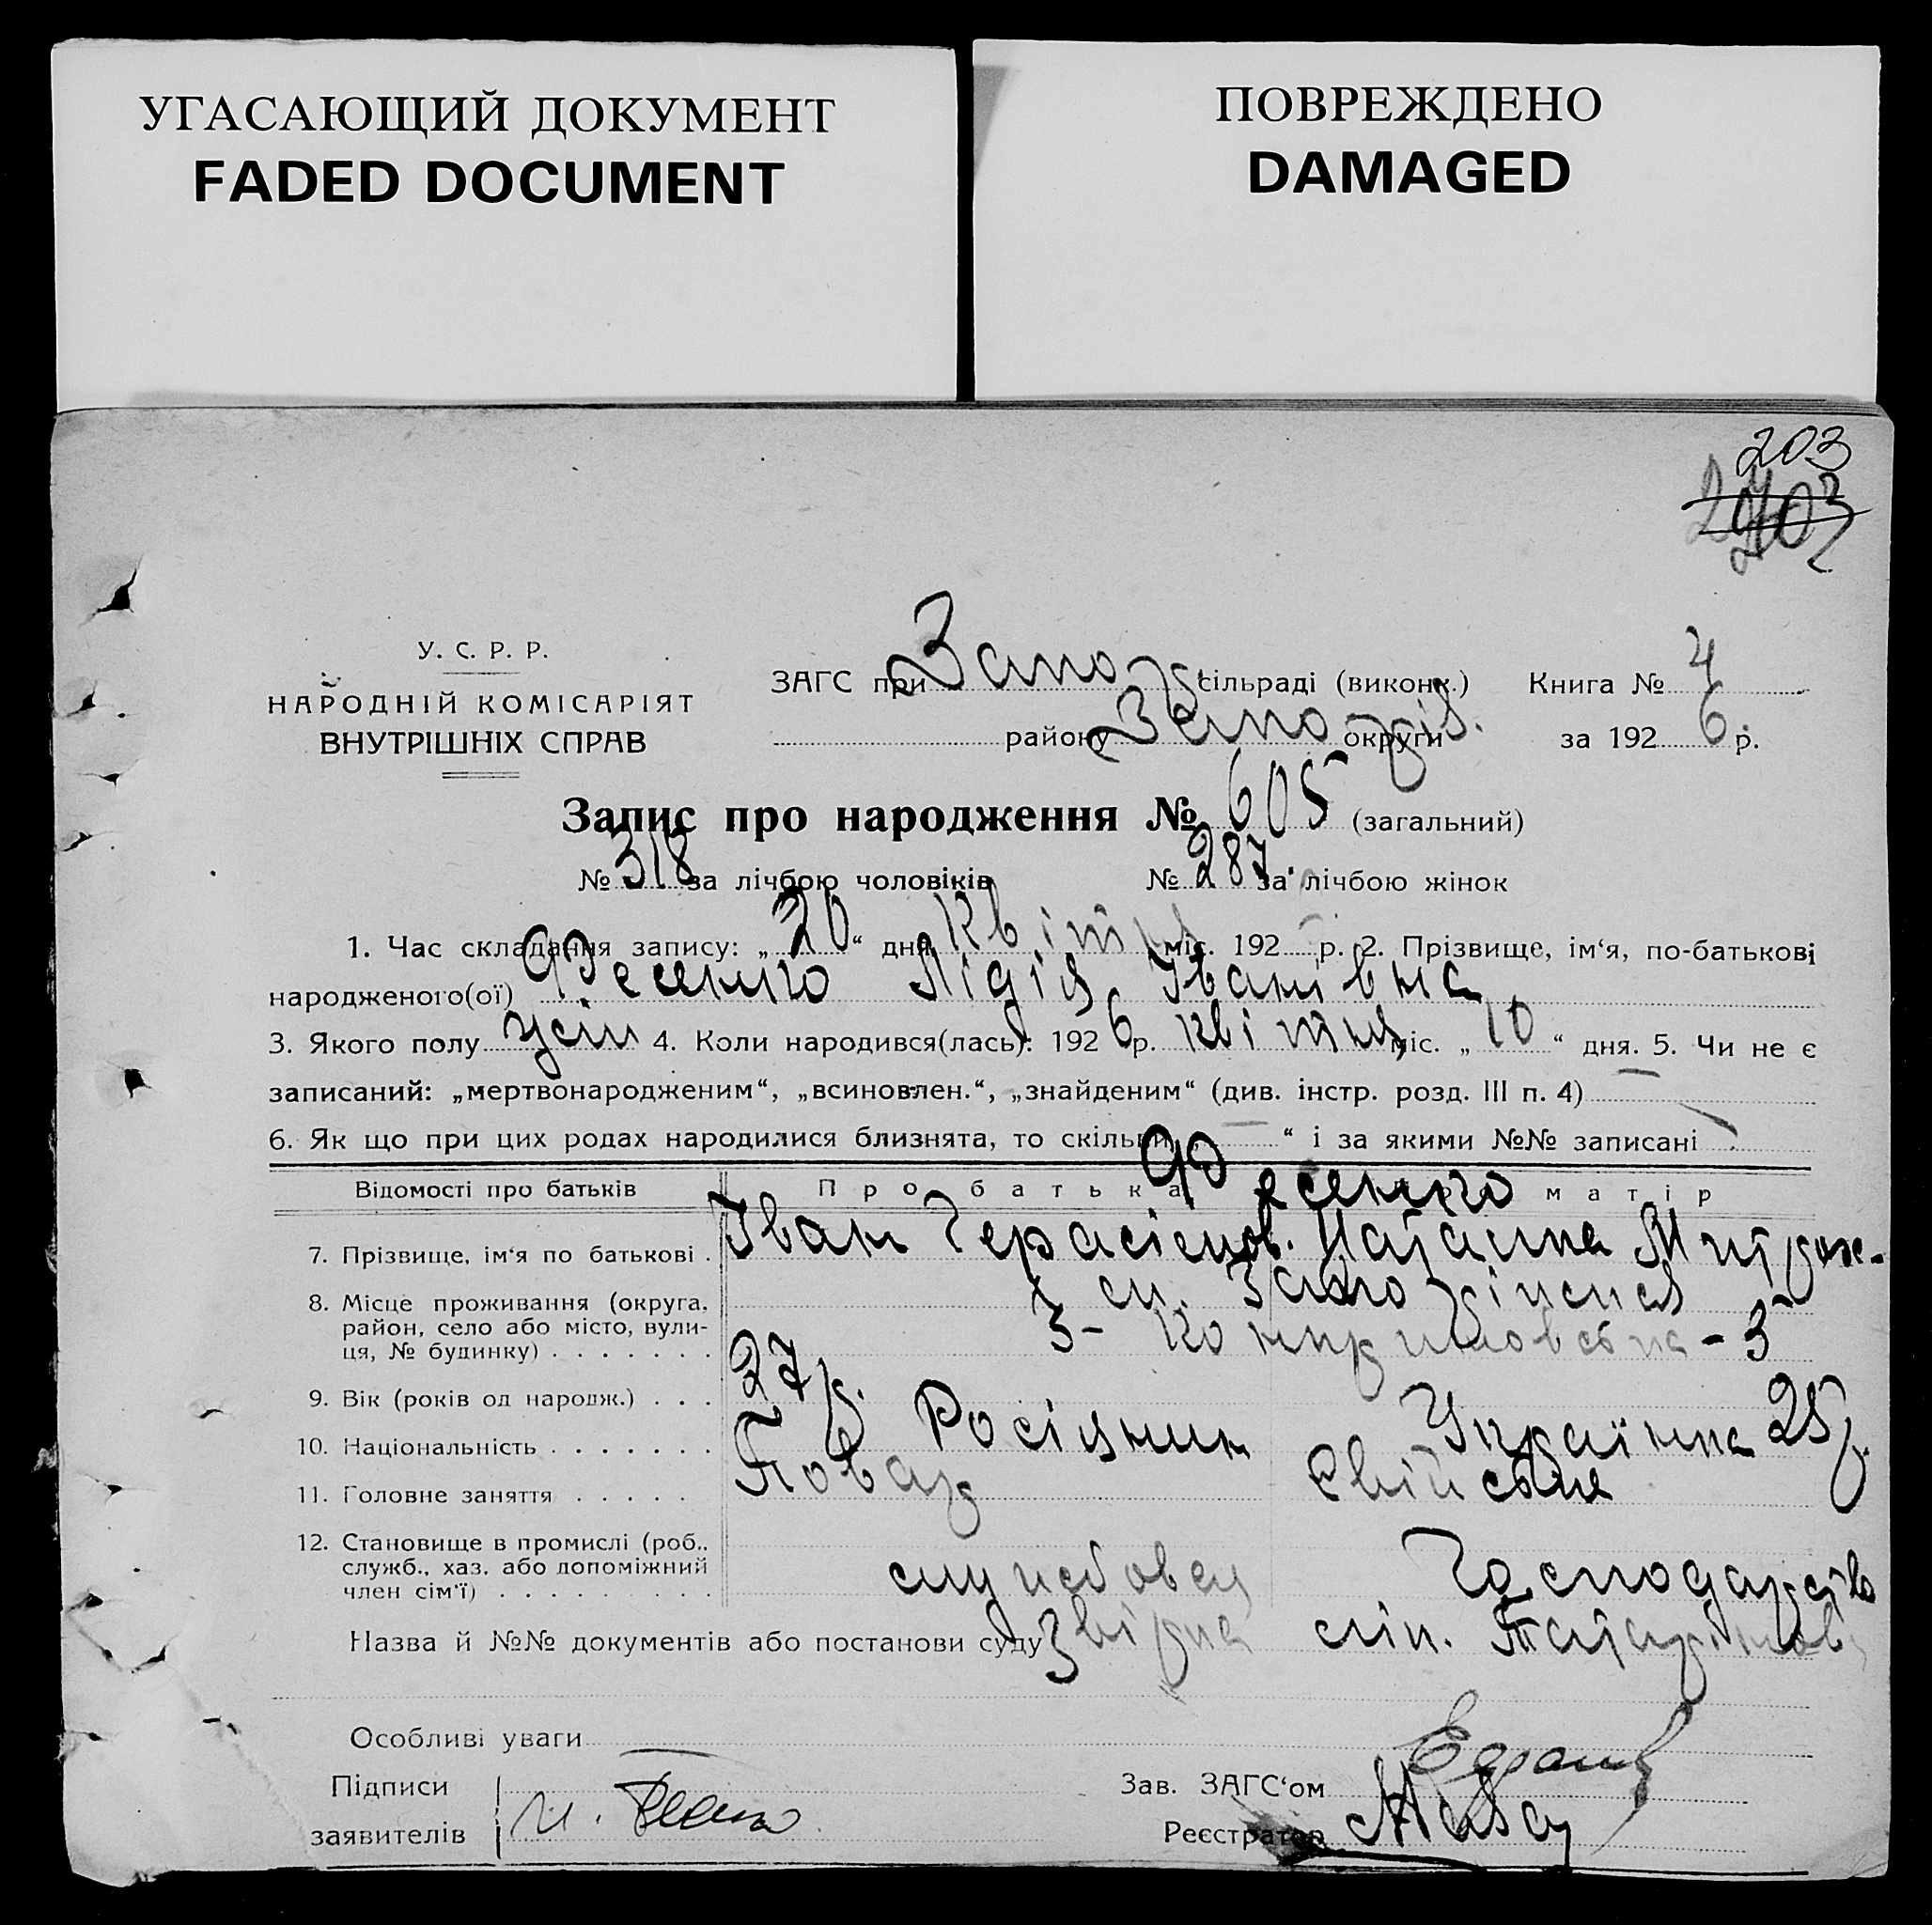 УГАСАЮЩИЙ ДОКУМЕНТ
FADED DOCUMENT
ПОВРЕЖДЕНО
DAMAGED
203
У. С. Р. Р.
НАРОДНІЙ КОМІСАРІЯТ
ВНУТРІШНІХ СПРАВ
ЗАГС при Запор сільраді (виконк.) Книга № 4
району Запоріз. округи за 1926 р.
Запис про народження № 605 (загальний)
№ 318 за лічбою чоловіків № 287 за лічбою жінок
1. Час складання запису: „20“ дня квітня міс. 192 р. 2. Прізвище, ім‘я, по-батькові
народженого(ої) Фесенко Лідія Іванівна
3. Якого полу жін 4. Коли народився(лась): 1926 р. квітня міс. „10“ дня. 5. Чи не є
записаний: „мертвонародженим“, „всиновлен.“, „знайденим“ (див. інстр. розд. III п. 4) —
6. Як що при цих родах народилися близнята, то скільки „—“ і за якими №№ записані
Відомості про батьків Про батька матір
Фесенко
7. Прізвище, ім‘я по батькові . Іван Герасімов. Наталка Митроф.
8. Місце проживання (округа, район, село або місто, вулиця, № будинку) . . . . . . . ст. Запоріжжя
9. Вік (років од народж.) . . . 27 р. 25 р.
10. Національність . . . . . . . Росіянин Українка
11. Головне заняття . . . . . Повар Свійське
12. Становище в промислі (роб., служб., хаз. або допоміжний член сім‘ї) . . . . . . . . . службовец Господарство
Назва й №№ документів або постанови суду
Особливі уваги —
Підписи
заявителів
Зав. ЗАГС‘ом
Реєстратор